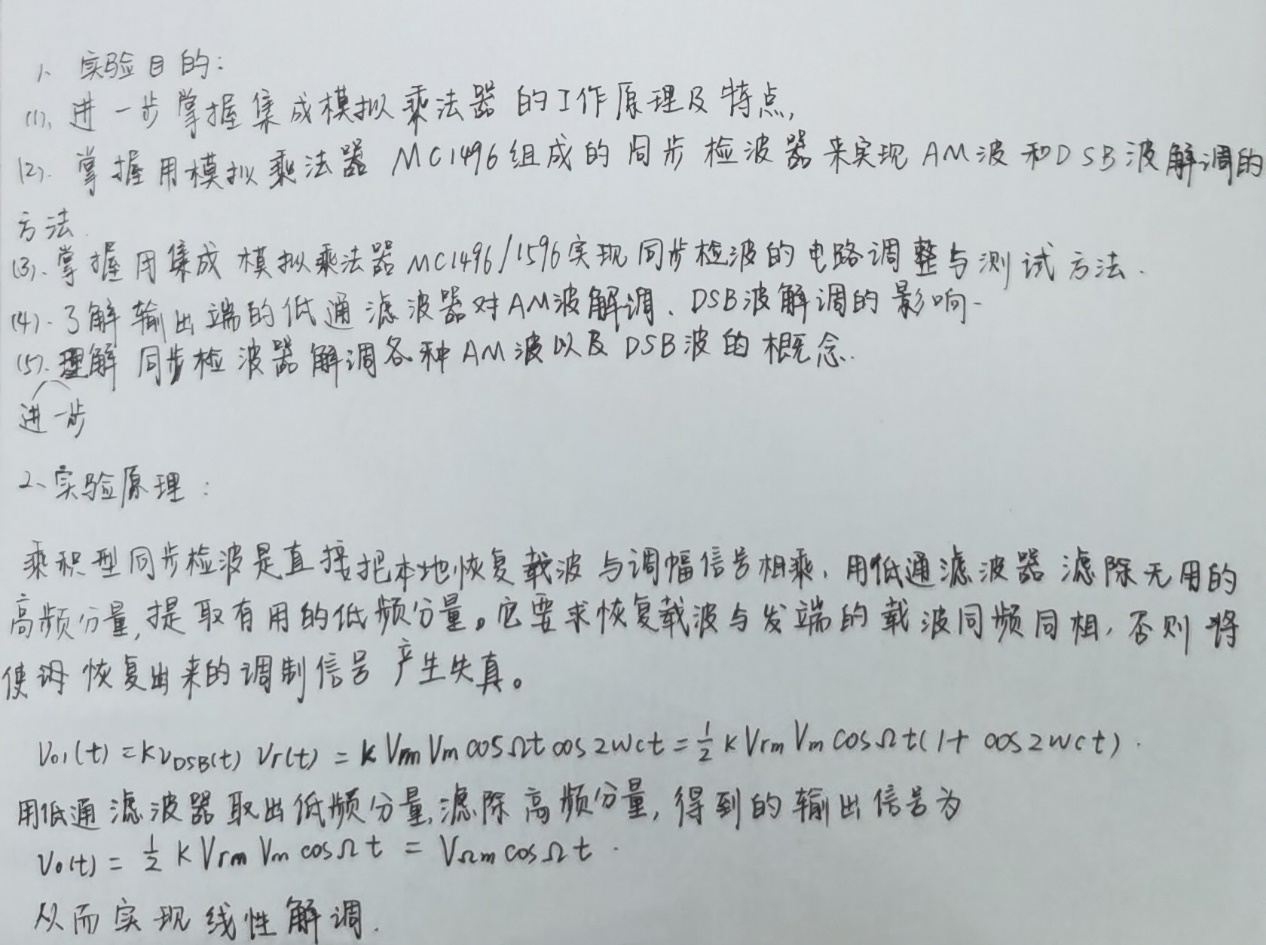 1、实验目的:
(1)、进一步掌握集成模拟乘法器的工作原理及特点,
(2)、掌握用模拟乘法器 MC1496组成的同步检波器来实现AM波和DSB波解调的
方法.
(3)、掌握用集成模拟乘法器MC1496/1596实现同步检波的电路调整与测试方法.
(4)、了解输出端的低通滤波器对AM波解调、DSB波解调的影响.
(5)、理解同步检波器解调各种AM波以及DSB波的概念.
进一步
2、实验原理:
乘积型同步检波是直接把本地恢复载波与调幅信号相乘,用低通滤波器滤除无用的
高频分量,提取有用的低频分量。它要求恢复载波与发端的载波同频同相,否则将
使得恢复出来的调制信号产生失真。
Vo1(t)=KVDSB(t) Vr(t)=KVrmVmcosΩtcos2wct=½KVrmVmcosΩt(1+cos2wct).
用低通滤波器取出低频分量,滤除高频分量,得到的输出信号为
Vo(t)=½KVrmVmcosΩt=VΩmcosΩt.
从而实现线性解调.